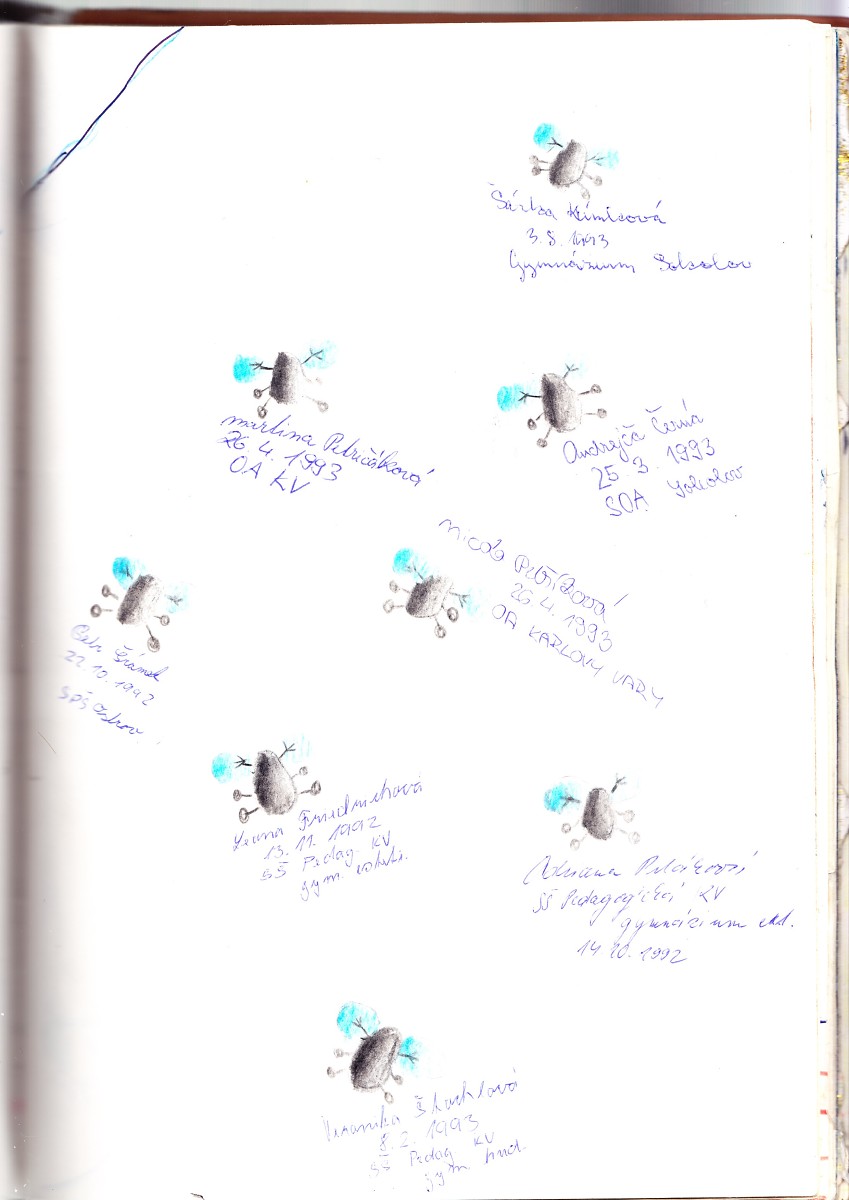 Šárka
3.8.1993
Gymnázium Sokolov
Martina Petričáková
26.4.1993
OA KV
Andrejča Černá
25.3.1993
SOA Sokolov
Nicola
26.4.1993
OA KARLOVY VARY
Petr Šrámek
22.10.1992
SPŠ Ostrov
Leona Friedrichová
13.11.1992
SŠ Pedag. KV
gym.
Adriana
SŠ Pedagogická KV
gymnázium
14.10.1992
Veronika
8.2.1993
SŠ Pedag KV
gym hud.